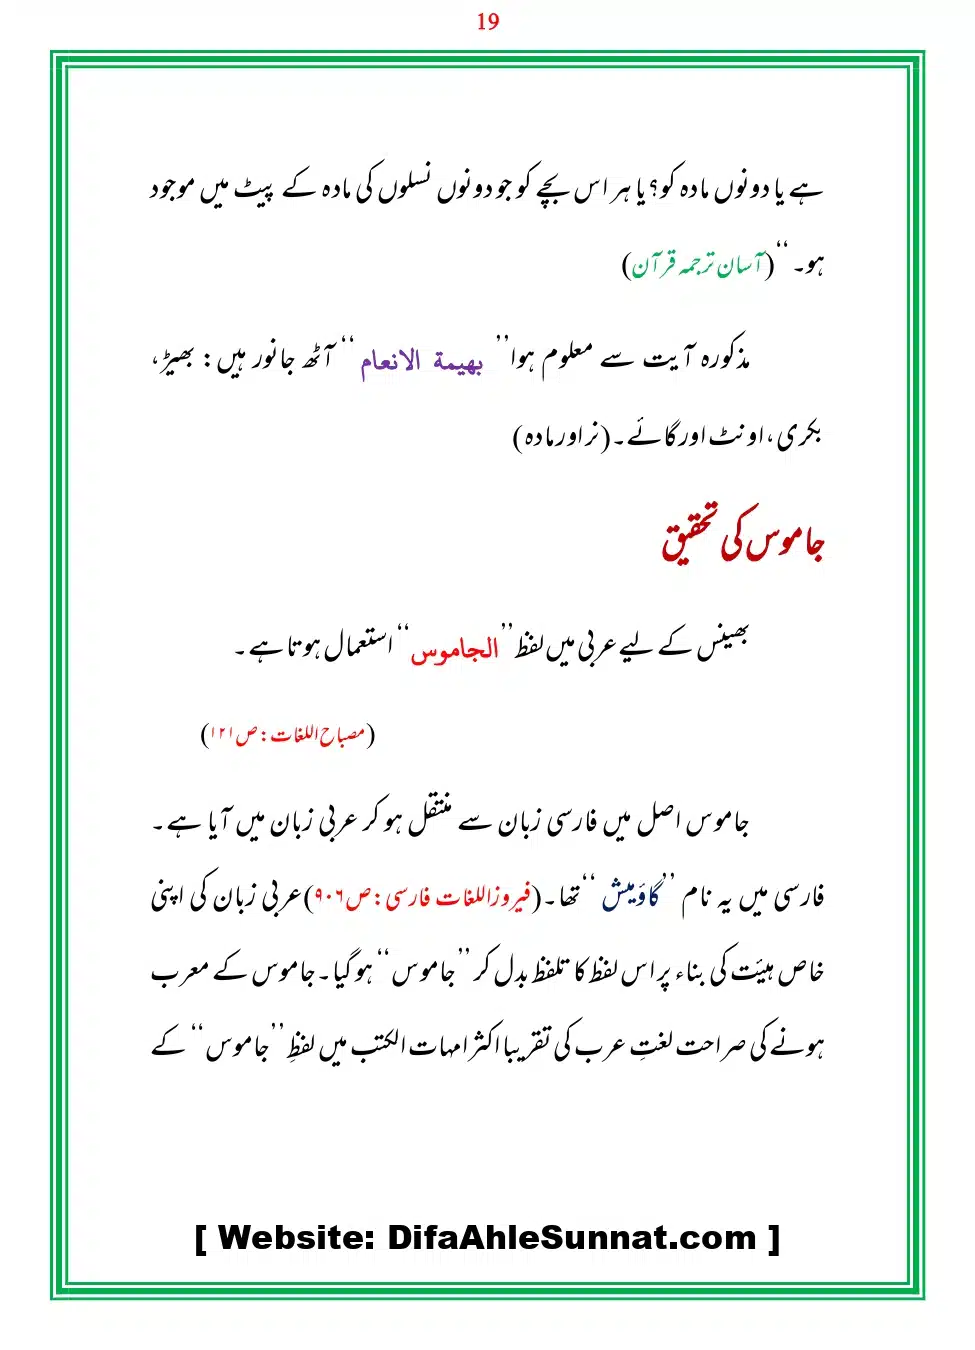 19
ہے یا دونوں مادہ کو؟ یا ہر اس بچے کو جو دونوں نسلوں کی مادہ کے پیٹ میں موجود
ہو۔‘‘ (آسان ترجمہ قرآن)
مذکورہ آیت سے معلوم ہوا’’ بهيمة الانعام ‘‘ آٹھ جانور ہیں: بھیڑ،
بکری، اونٹ اور گائے۔ (نر اور مادہ)
جاموس کی تحقیق
بھینس کے لیے عربی میں لفظ ’’الجاموس‘‘ استعمال ہوتا ہے۔
(مصباح اللغات: ص۱۲۱)
جاموس اصل میں فارسی زبان سے منتقل ہو کر عربی زبان میں آیا ہے۔
فارسی میں یہ نام ’’گاؤمیش‘‘ تھا۔ (فیروز اللغات فارسی: ص۹۰۶) عربی زبان کی اپنی
خاص ہیئت کی بناء پر اس لفظ کا تلفظ بدل کر ’’جاموس‘‘ ہو گیا۔ جاموس کے معرب
ہونے کی صراحت لغتِ عرب کی تقریبا اکثر امہات الکتب میں لفظِ ’’جاموس‘‘ کے
[ Website: DifaAhleSunnat.com ]